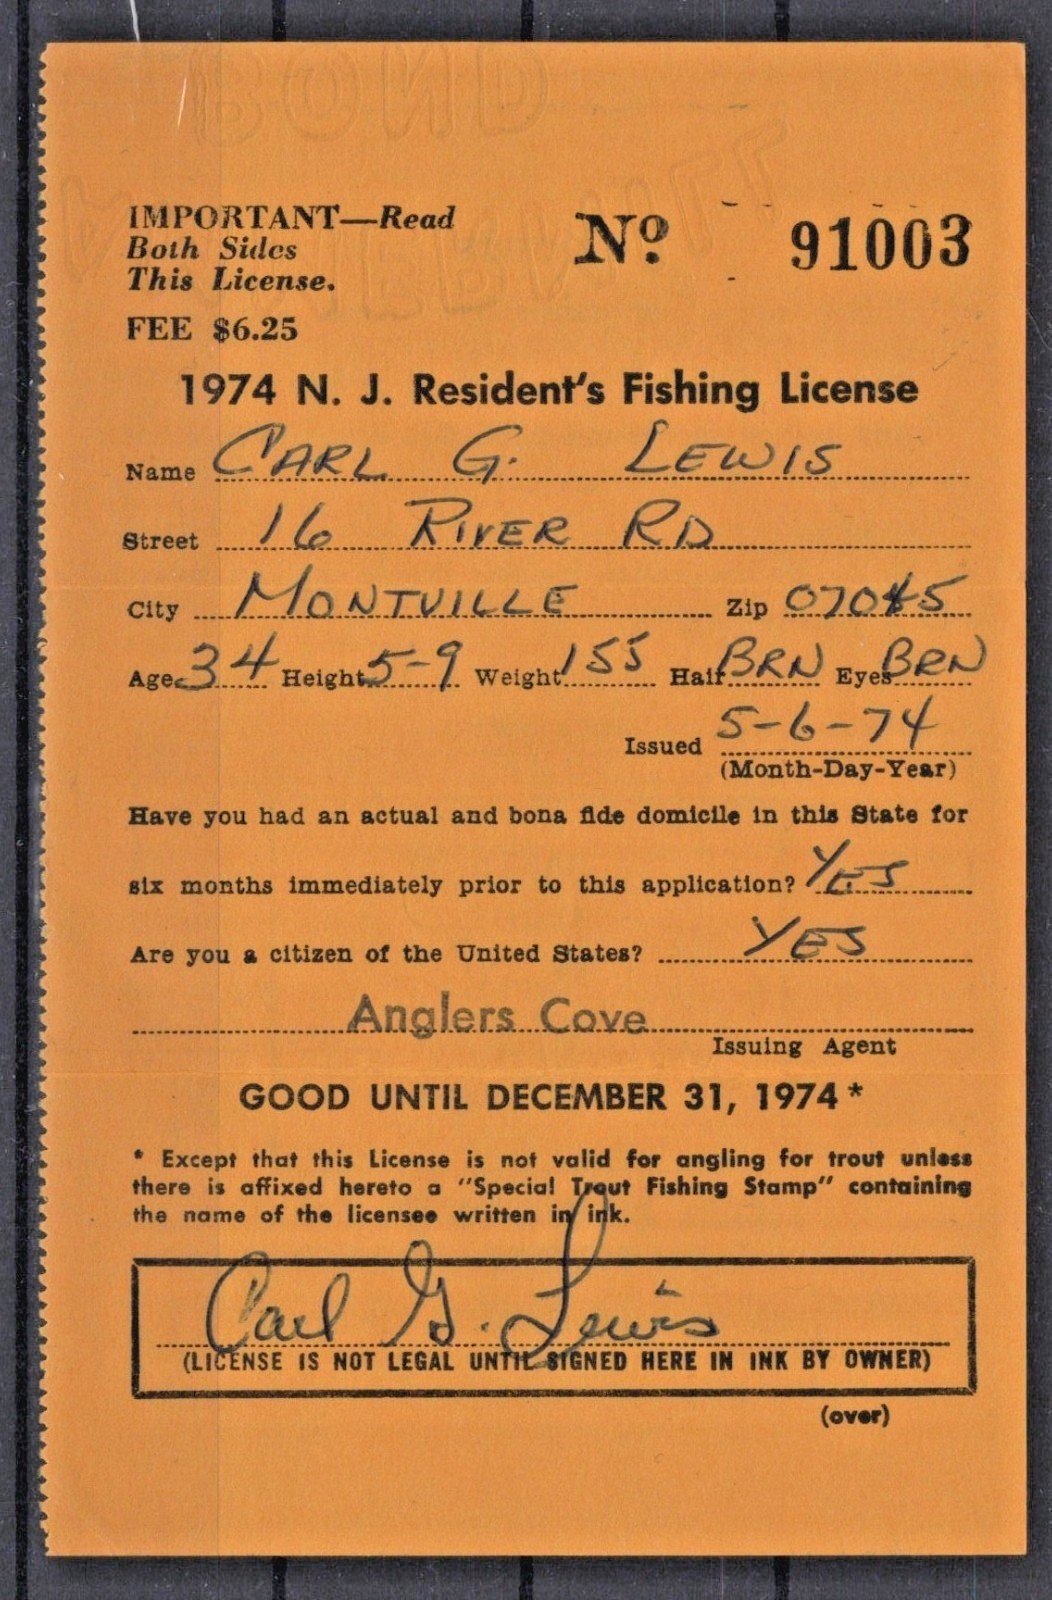 IMPORTANT—Read
Both Sides
This License.
No. 91003
FEE $6.25
1974 N. J. Resident's Fishing License
Name CARL G. LEWIS
Street 16 RIVER RD
City MONTVILLE Zip 07045
Age 34 Height 5-9 Weight 155 Hair BRN Eyes BRN
Issued 5-6-74
(Month-Day-Year)
Have you had an actual and bona fide domicile in this State for
six months immediately prior to this application? YES
Are you a citizen of the United States? YES
Anglers Cove
Issuing Agent
GOOD UNTIL DECEMBER 31, 1974*
* Except that this License is not valid for angling for trout unless
there is affixed hereto a "Special Trout Fishing Stamp" containing
the name of the licensee written in ink.
Carl G. Lewis
(LICENSE IS NOT LEGAL UNTIL SIGNED HERE IN INK BY OWNER)
(over)